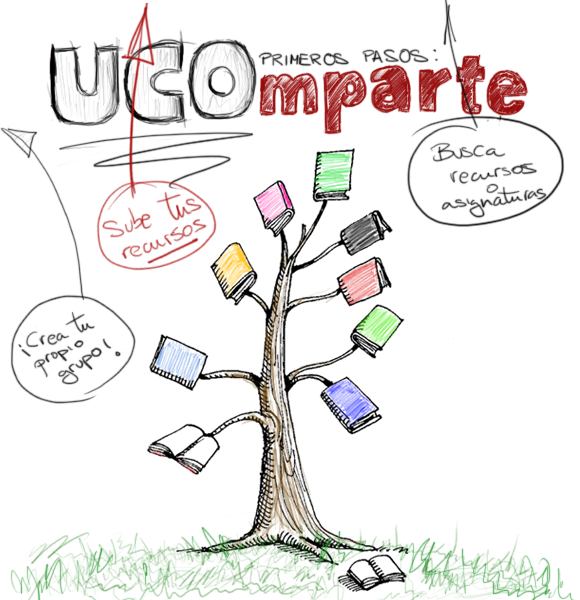 PRIMEROS PASOS:
UCOmparte
Busca
recursos
o
asignaturas
Sube tus
recursos
¡Crea tu
propio
grupo!